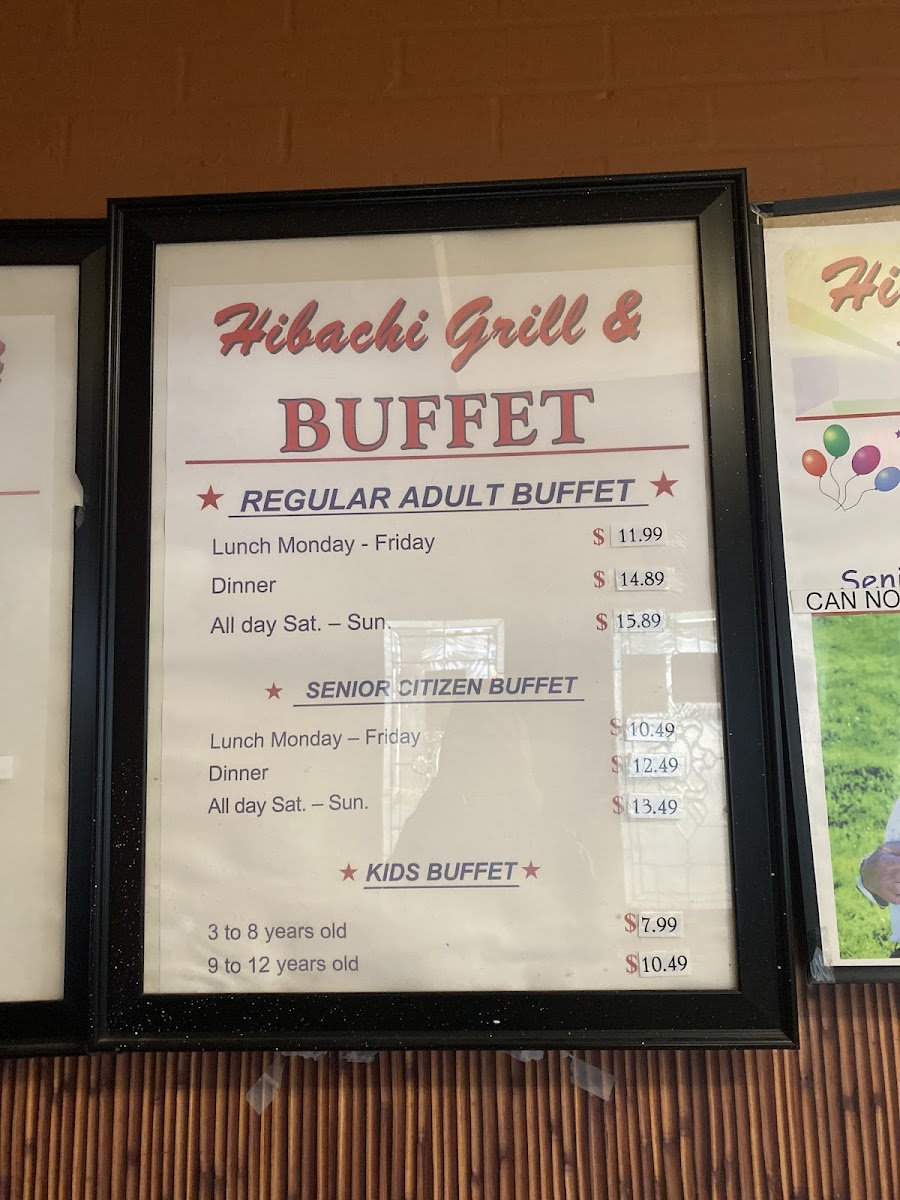 Hibachi Grill &
BUFFET
REGULAR ADULT BUFFET
Lunch Monday - Friday $ 11.99
Dinner $ 14.89
All day Sat. – Sun. $ 15.89
SENIOR CITIZEN BUFFET
Lunch Monday – Friday $ 10.49
Dinner $ 12.49
All day Sat. – Sun. $ 13.49
KIDS BUFFET
3 to 8 years old $ 7.99
9 to 12 years old $ 10.49
Hi
Seni
CAN NO